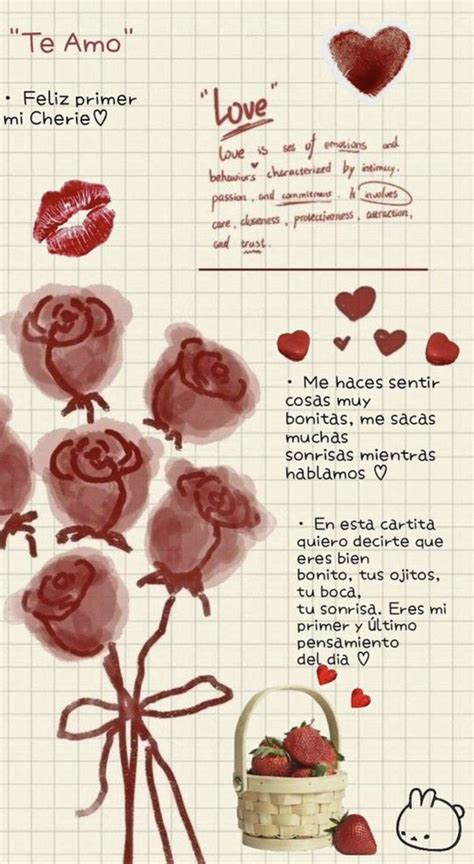 "Te Amo"
• Feliz primer
mi Cherie♡
"Love"
Love is set of emotions and
behaviors characterized by intimacy,
passion, and commitment. It involves
care, closeness, protectiveness, attraction,
and trust.
• Me haces sentir
cosas muy
bonitas, me sacas
muchas
sonrisas mientras
hablamos ♡
• En esta cartita
quiero decirte que
eres bien
bonito, tus ojitos,
tu boca,
tu sonrisa. Eres mi
primer y último
pensamiento
del dia ♡